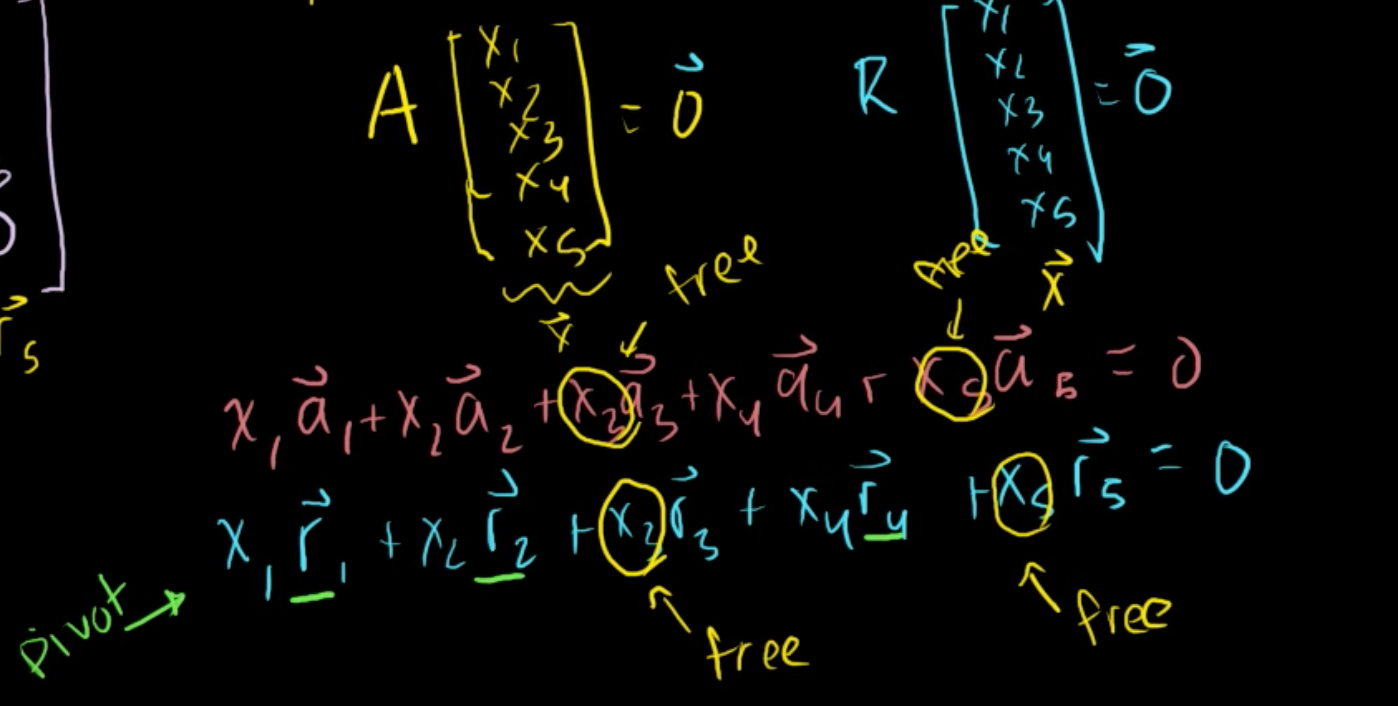 A [x₁ x₂ x₃ x₄ x₅] = 0⃗
R [x₁ x₂ x₃ x₄ x₅] = 0⃗
x⃗
free
free
x⃗
r⃗₅
x₁a⃗₁ + x₂a⃗₂ + x₃a⃗₃ + x₄a⃗₄ + x₅a⃗₅ = 0
x₁r⃗₁ + x₂r⃗₂ + x₃r⃗₃ + x₄r⃗₄ + x₅r⃗₅ = 0
pivot
free
free